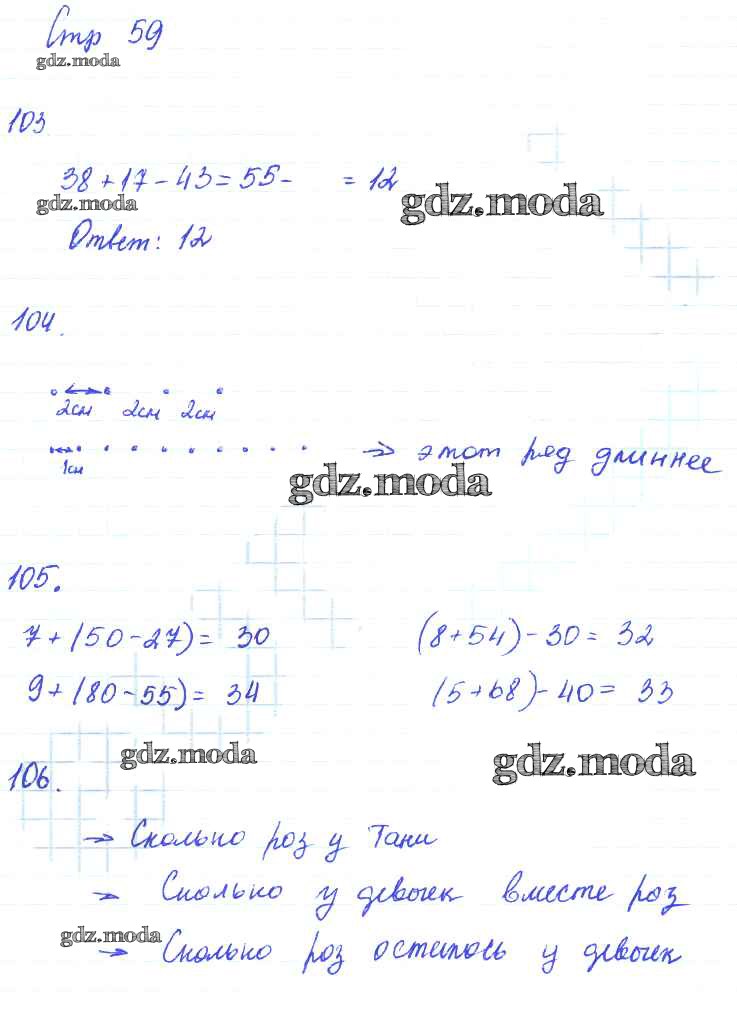 Стр 59
gdz.moda
103
38 + 17 - 43 = 55 - = 12
gdz.moda
gdz.moda
Ответ: 12
104.
2см 2см 2см
1см
→ этот ряд длиннее
gdz.moda
105.
7 + (50 - 27) = 30 (8 + 54) - 30 = 32
9 + (80 - 55) = 34 (5 + 68) - 40 = 33
gdz.moda
gdz.moda
106.
→ Сколько роз у Тани
→ Сколько у девочек вместе роз
gdz.moda
→ Сколько роз осталось у девочек